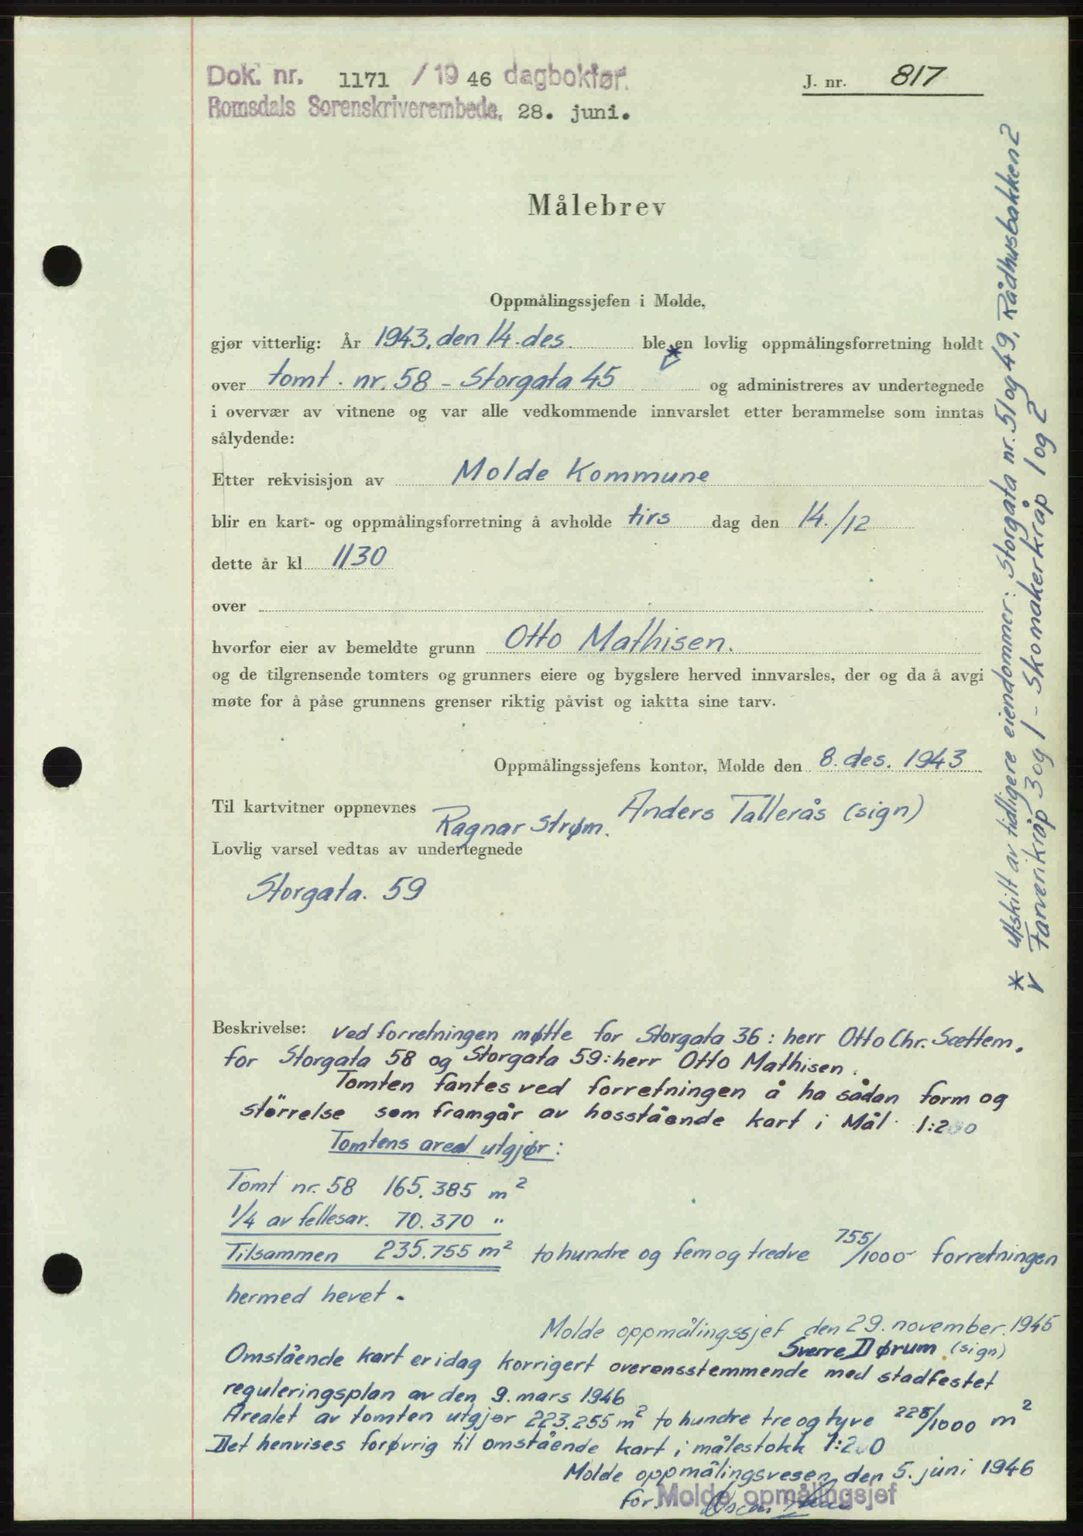 Dok. nr. 1171 / 19 46 dagbokført.
J. nr. 817
Romsdals Sorenskriverembede, 28. juni.
Målebrev
Oppmålingssjefen i Molde,
gjør vitterlig: År 1943, den 14. des. ble en lovlig oppmålingsforretning holdt
over tomt. nr. 58 - Storgata 45 og administreres av undertegnede
i overvær av vitnene og var alle vedkommende innvarslet etter berammelse som inntas
sålydende:
Etter rekvisisjon av Molde Kommune
blir en kart- og oppmålingsforretning å avholde tirs dag den 14./12
dette år kl 1130
over
hvorfor eier av bemeldte grunn Otto Mathisen.
og de tilgrensende tomters og grunners eiere og bygslere herved innvarsles, der og da å avgi
møte for å påse grunnens grenser riktig påvist og iaktta sine tarv.
Oppmålingssjefens kontor, Molde den 8. des. 1943
Til kartvitner oppnevnes Ragnar Strøm. Anders Tallerås (sign)
Lovlig varsel vedtas av undertegnede
Storgata. 59
* Utskilt av tidligere eiendommer: Storgata nr. 51 og 49, Rådhusbakken 2
v Farverikråp 3 og 1 - Skomakerkråp 1 og 2
Beskrivelse: Ved forretningen møtte for Storgata 36: herr Otto Chr. Sættem.
for Storgata 58 og Storgata 59: herr Otto Mathisen.
Tomten fantes ved forretningen å ha sådan form og
størrelse som framgår av hosstående kart i Mål 1:200
Tomtens areal utgjør:
Tomt nr. 58 165.385 m²
1/4 av fellesar. 70.370 "
Tilsammen 235.755 m² to hundre og fem og tredve 755/1000 forretningen
hermed hevet.
Molde oppmålingssjef den 29. november. 1945
Sverre Dørum (sign)
Omstående kart er idag korrigert overensstemmende med stadfestet
reguleringsplan av den 9. mars 1946
Arealet av tomten utgjør 223.255 m² to hundre tre og tyve 225/1000 m²
Det henvises forøvrig til omstående kart i målestokk 1:200
Molde oppmålingsvesen den 5. juni 1946
for Molde opmålingsjef
Oscar